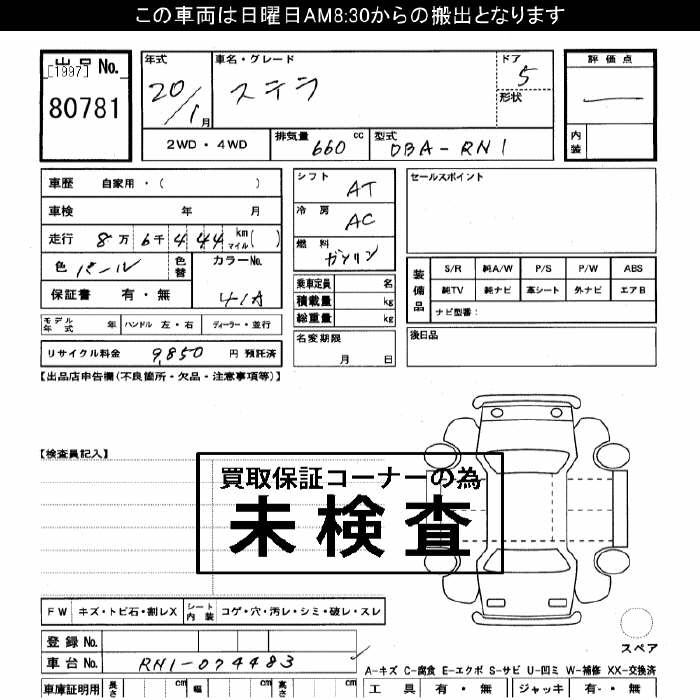 この車両は日曜日AM8:30からの搬出となります
出品No.
[1997]
80781
年式 20/1月
車名・グレード ステラ
ドア 5
形状
評価点 —
内装
2WD・4WD
排気量 660 cc
型式 DBA-RN1
車歴 自家用・( )
車検 年 月
走行 8万6千444 km マイル( )
色 パール 色替 カラーNo. 41A
保証書 有・無
モデル年式 年 ハンドル 左・右 ディーラー・並行
リサイクル料金 9,850 円 預託済
シフト AT
冷房 AC
燃料 ガソリン
乗車定員 名
積載量 kg
総重量 kg
名変期限 月 日
セールスポイント
装備品 S/R 純A/W P/S P/W ABS
純TV 純ナビ 革シート 外ナビ エアB
ナビ型番:
後日品
【出品店申告欄(不良箇所・欠品・注意事項等)】
【検査員記入】
買取保証コーナーの為
未検査
FW キズ・トビ石・割レX シート内装 コゲ・穴・汚レ・シミ・破レ・スレ
登録No.
車台No. RN1-074483
スペア
A-キズ C-腐食 E-エクボ S-サビ U-凹ミ W-補修 XX-交換済
車庫証明用 長さ cm 幅 cm 高さ cm
工具 有・無 ジャッキ 有・無